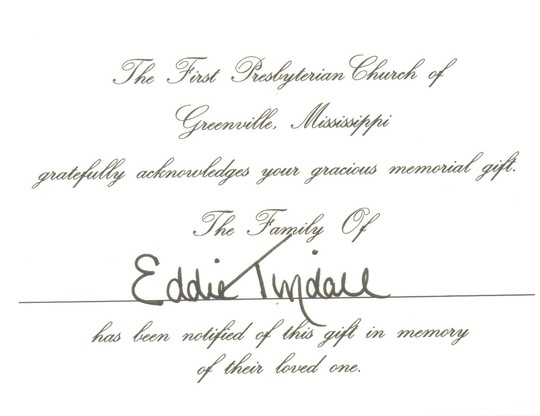 The First Presbyterian Church of
Greenville, Mississippi
gratefully acknowledges your gracious memorial gift.
The Family Of
Eddie Tindall
has been notified of this gift in memory
of their loved one.